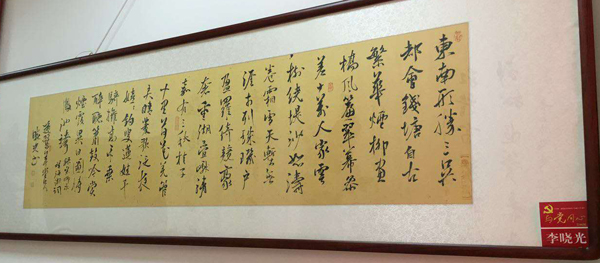 東南形勝三吳
都會錢塘自古
繁華煙柳畫
橋風簾翠幕參
差十萬人家雲
樹繞堤沙怒濤
卷霜雪天塹無
涯市列珠璣戶
盈羅綺競豪
奢重湖疊巘清
嘉有三秋桂子
十里荷花羌管
弄晴菱歌泛夜
嬉嬉釣叟蓮娃千
騎擁高牙乘
醉聽簫鼓吟賞
煙霞異日圖將
党同心
李晓光